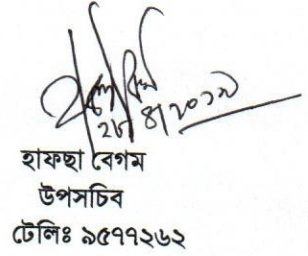 ২৮/৪/২০১৯
হাফছা বেগম
উপসচিব
টেলিঃ ৯৫৭৭২৬২